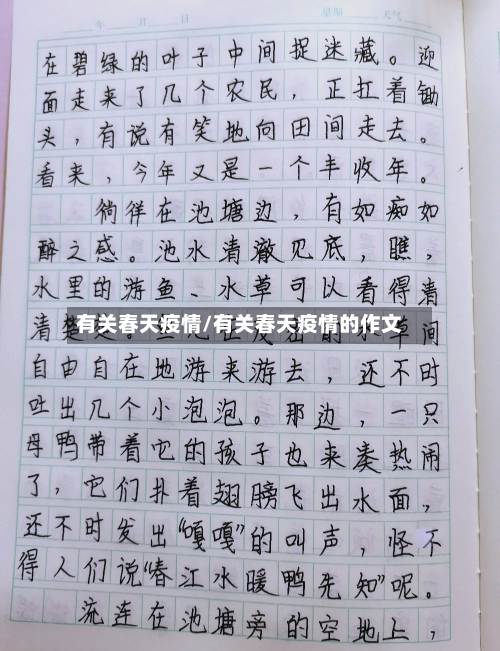 年 月 日 星期 天气
在碧绿的叶子中间捉迷藏。迎
面走来了几个农民，正扛着锄
头，有说有笑地向田间走去。
看来，今年又是一个丰收年。
徜徉在池塘边，有如痴如
醉之感。池水清澈见底，瞧，
水里的游鱼、水草可以看得清
清楚
有关春天疫情/有关春天疫情的作文
草间
自由自在地游来游去，还不时
吐出几个小泡泡。那边，一只
母鸭带着它的孩子也来凑热闹
了，它们扑着翅膀飞出水面，
还不时发出“嘎嘎”的叫声，怪不
得人们说“春江水暖鸭先知”呢。
流连在池塘旁的空地上，